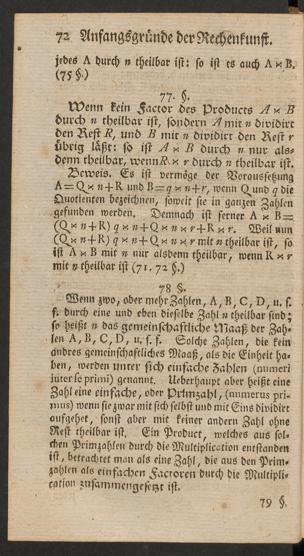 72 Anfangsgründe der Rechenkunst.
jedes A durch n theilbar ist: so ist es auch A × B.
(75 §.)
77. §.
Wenn kein Factor des Products A × B
durch n theilbar ist, sondern A mit n dividirt
den Rest R, und B mit n dividirt den Rest r
übrig läßt: so ist A × B durch n nur als-
denn theilbar, wenn R × r durch n theilbar ist.
Beweis. Es ist vermöge der Voraussetzung
A = Q × n + R und B = q × n + r, wenn Q und q die
Quotienten bezeichnen, soweit sie in ganzen Zahlen
gefunden werden. Demnach ist ferner A × B =
(Q × n + R) q × n + Q × n × r + R × r. Weil nun
(Q × n + R) q × n + Q × n × r mit n theilbar ist, so
ist A × B mit n nur alsdenn theilbar, wenn R × r
mit n theilbar ist (71. 72 §.)
78 §.
Wenn zwo, oder mehr Zahlen, A, B, C, D, u. s.
f. durch eine und eben dieselbe Zahl n theilbar sind;
so heißt n das gemeinschaftliche Maaß der Zah-
len A, B, C, D, u. s. f. Solche Zahlen, die kein
andres gemeinschaftliches Maaß, als die Einheit ha-
ben, werden unter sich einfache Zahlen (numeri
inter se primi) genannt. Ueberhaupt aber heißt eine
Zahl eine einfache, oder Primzahl, (numerus pri-
mus) wenn sie zwar mit sich selbst und mit Eins dividirt
aufgehet, sonst aber mit keiner andern Zahl ohne
Rest theilbar ist. Ein Product, welches aus sol-
chen Primzahlen durch die Multiplication entstanden
ist, betrachtet man als eine Zahl, die aus den Prim-
zahlen als einfachen Factoren durch die Multipli-
cation zusammengesetzt ist.
79 §.